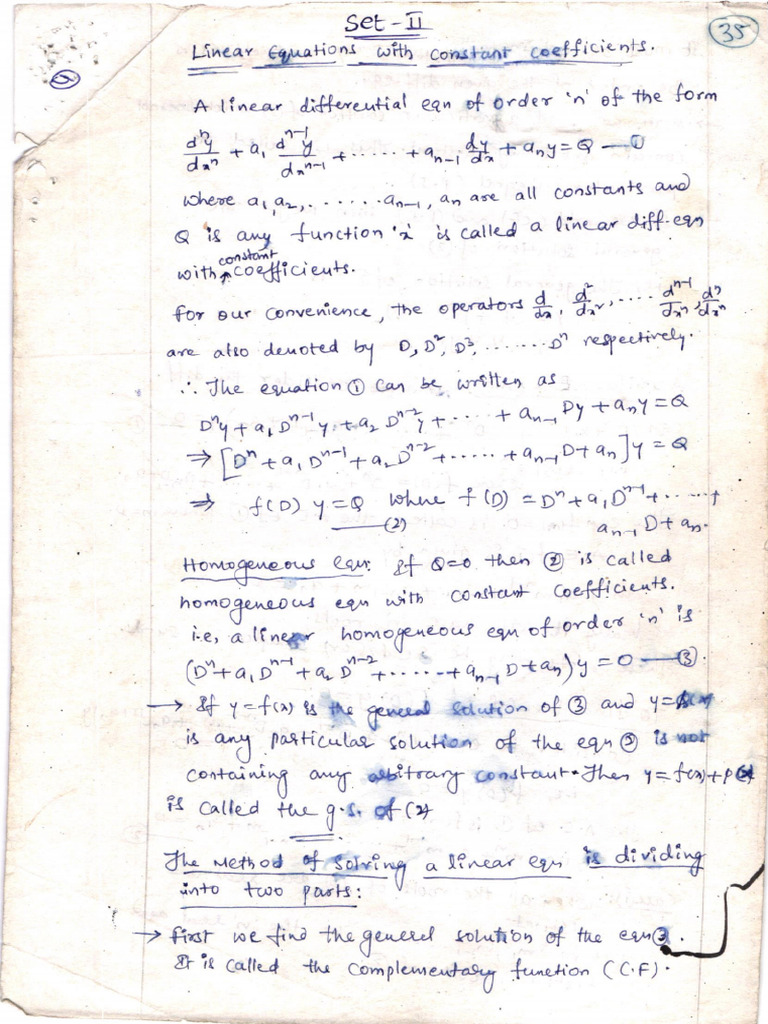 Set-II
35
Linear Equations with constant coefficients.
A linear differential eqn of order 'n' of the form
dⁿy/dxⁿ + a₁ dⁿ⁻¹y/dxⁿ⁻¹ + ...... + aₙ₋₁ dy/dx + aₙy = Q —①
where a₁, a₂, ....... aₙ₋₁, aₙ are all constants and
Q is any function 'x' is called a linear diff-eqn
with constant coefficients.
for our convenience, the operators d/dx, d²/dx², ..... dⁿ⁻¹/dxⁿ, dⁿ/dxⁿ
are also denoted by D, D², D³, ....... Dⁿ respectively.
∴ The equation ① can be written as
Dⁿy + a₁Dⁿ⁻¹y + a₂Dⁿ⁻²y + ..... + aₙ₋₁Dy + aₙy = Q
⇒ [Dⁿ + a₁Dⁿ⁻¹ + a₂Dⁿ⁻² + ..... + aₙ₋₁D + aₙ]y = Q
⇒ f(D) y = Q where f(D) = Dⁿ + a₁Dⁿ⁻¹ + ..... +
—(2) aₙ₋₁D + aₙ.
Homogeneous Eqn: If Q=0 then ② is called
homogeneous eqn with constant coefficients.
i.e, a linear homogeneous eqn of order 'n' is
(Dⁿ + a₁Dⁿ⁻¹ + a₂Dⁿ⁻² + ...... + aₙ₋₁D + aₙ)y = 0 —③.
→ If y = f(x) is the general solution of ③ and y =
is any particular solution of the eqn is not
containing any arbitrary constant. Then y = f(x) + p(x)
is called the g.s. of (2)
The Method of solving a linear eqn is dividing
into two parts:
→ First we find the general solution of the eqn ③.
It is called the complementary function (C.F).